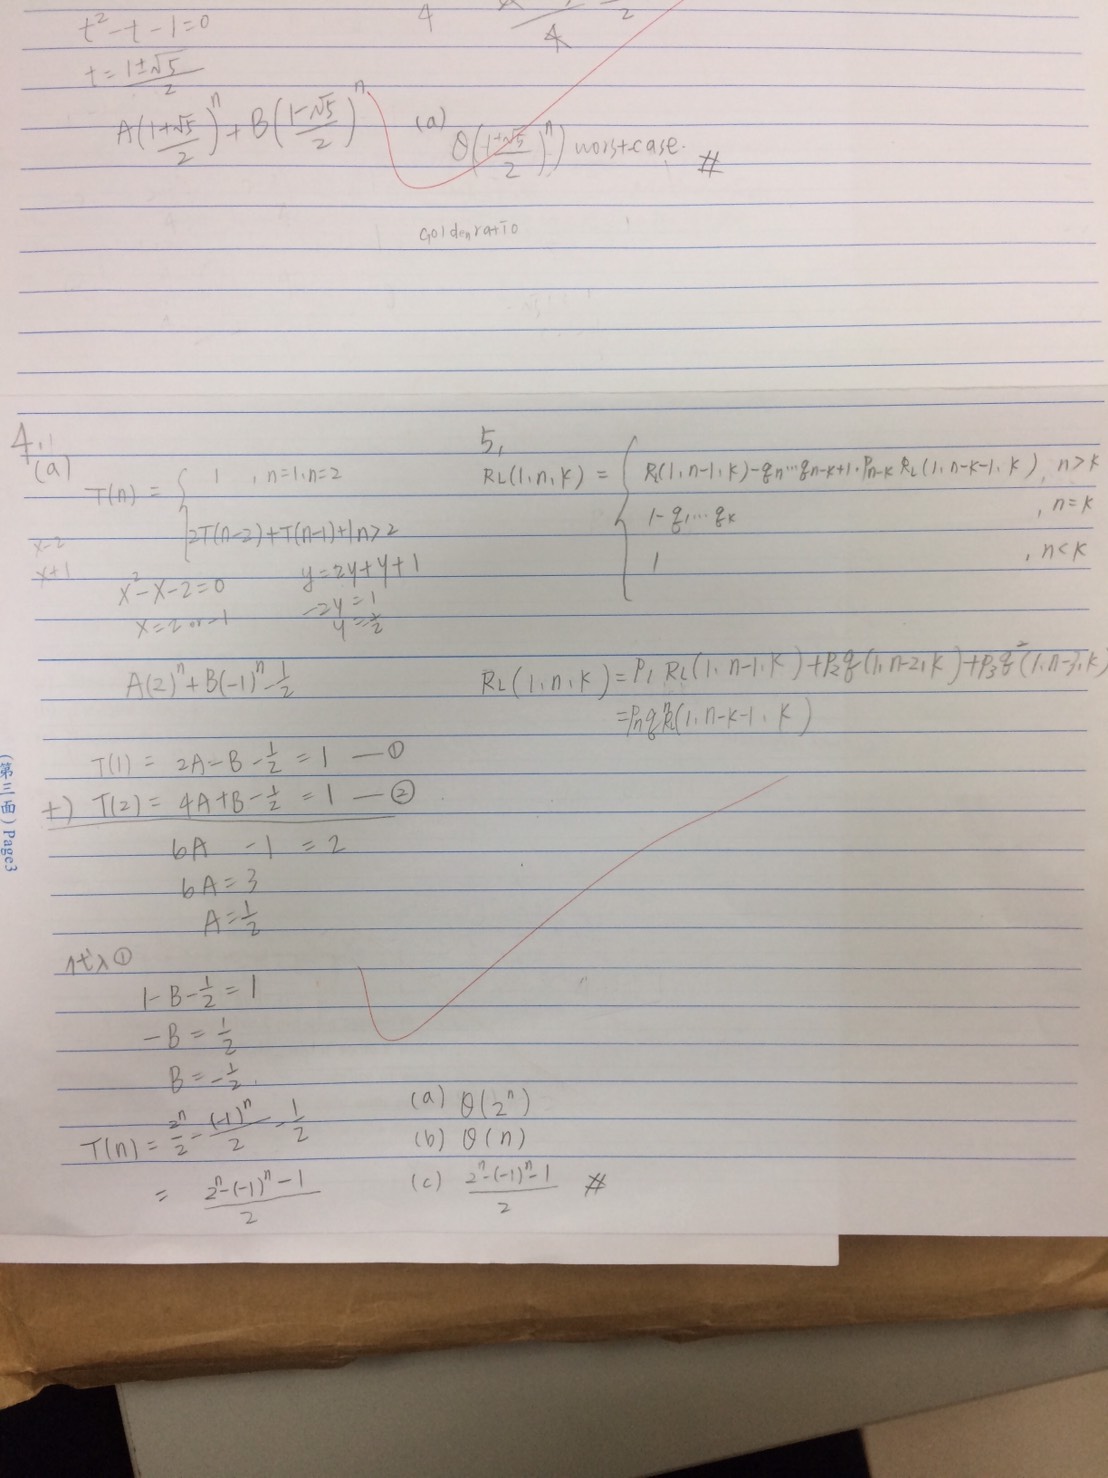 t²-t-1=0
t=(1±√5)/2
A((1+√5)/2)ⁿ+B((1-√5)/2)ⁿ
(a) θ((1+√5)/2)ⁿ) worst-case. #
Golden ratio
4.
(a)
T(n) = { 1 , n=1, n=2
2T(n-2)+T(n-1)+1 n>2
x-2
x+1
x²-x-2=0
x=2 or -1
y=2y+y+1
-2y=1
y=-1/2
A(2)ⁿ+B(-1)ⁿ-1/2
T(1) = 2A-B-1/2 = 1 —①
+) T(2) = 4A+B-1/2 = 1 —②
6A -1 = 2
6A=3
A=1/2
代入①
1-B-1/2=1
-B=1/2
B=-1/2
T(n)=2ⁿ/2-(-1)ⁿ/2-1/2
= (2ⁿ-(-1)ⁿ-1)/2
(a) θ(2ⁿ)
(b) θ(n)
(c) (2ⁿ-(-1)ⁿ-1)/2 #
5.
RL(1,n,k) = { RL(1,n-1,k)-qn…qn-k+1·Pn-k RL(1,n-k-1,k), n>k
1-q1…qk , n=k
1 , n<k
RL(1,n,k)=P1 RL(1,n-1,k)+P2q(1,n-2,k)+P3q²(1,n-3,k)
(第三面) Page3